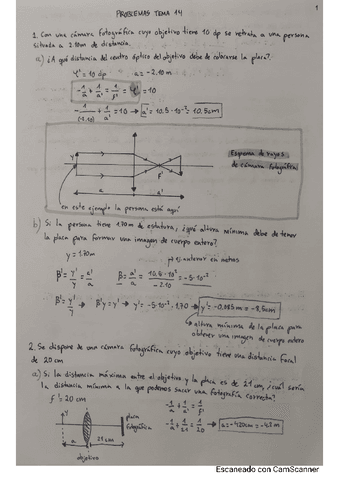 PROBLEMAS TEMA 14
1
1. Con una cámara fotográfica cuyo objetivo tiene 10 dp se retrata a una persona
situada a 2.10m de distancia.
a) ¿A qué distancia del centro óptico del objetivo debe de colocarse la placa?
φ' = 10 dp a = -2.10m
-1/a + 1/a' = 1/f' = φ' = 10
-1/(-2.10) + 1/a' = 10 → a' = 10.5·10⁻² = 10,5cm
Esquema de rayos
de cámara fotográfica
y
F'
a
a'
en este ejemplo la persona está aquí
b) Si la persona tiene 1.70m de estatura, ¿qué altura mínima debe de tener
la placa para formar una imagen de cuerpo entero?
y = 1.70m
β' = y'/y = a'/a
β = a'/a = 10,5·10⁻²/-2.10 = -5·10⁻²
β' = y'/y → β'y = y' → y' = -5·10⁻²·1.70 → y' = -0,085m = -8,5cm
altura mínima de la placa para
obtener una imagen de cuerpo entero
2. Se dispone de una cámara fotográfica cuyo objetivo tiene una distancia focal
de 20 cm
a) Si la distancia máxima entre el objetivo y la placa es de 21 cm, ¿cuál sería
la distancia mínima a la que podemos sacar una fotografía correcta?
f' = 20 cm
-1/a + 1/a' = 1/f'
-1/a + 1/21 = 1/20 → a = -420cm = -4,2m
y
placa
fotográfica
a
21cm
objetivo
Escaneado con CamScanner